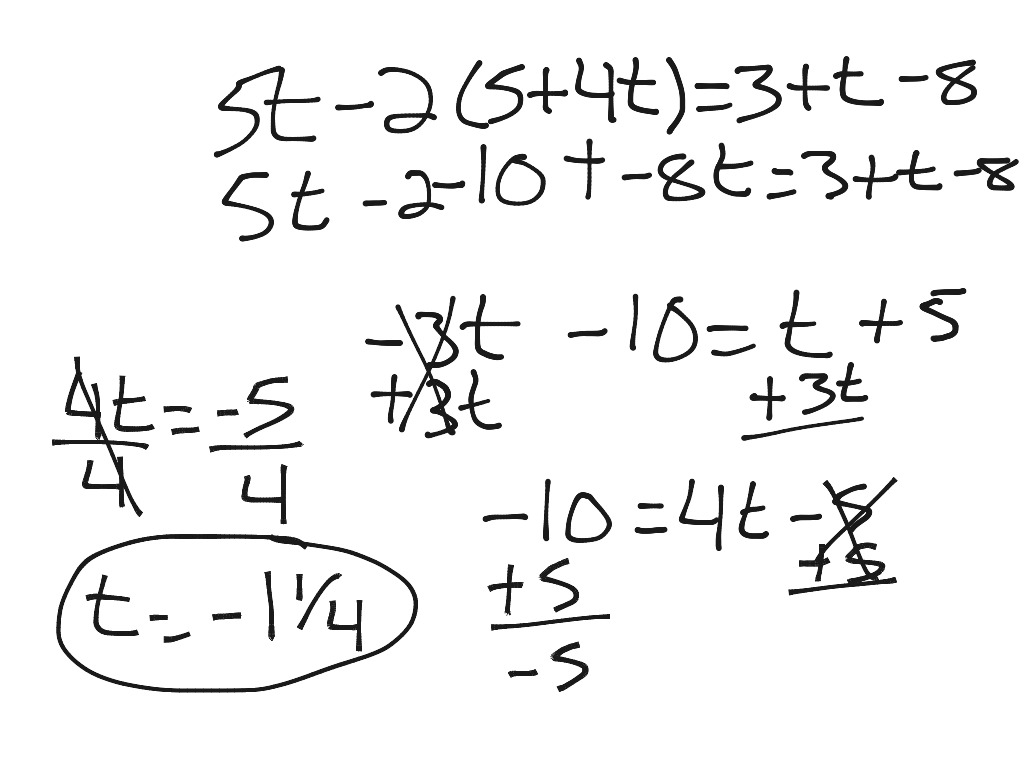 5t - 2(5+4t) = 3+t - 8
5t - 2 - 10 + - 8t = 3+t - 8
- 3t - 10 = t + 5
+ 3t + 3t
- 10 = 4t - 5
+ 5 + 5
- 5
4t = - 5
4 4
t = - 1 1/4